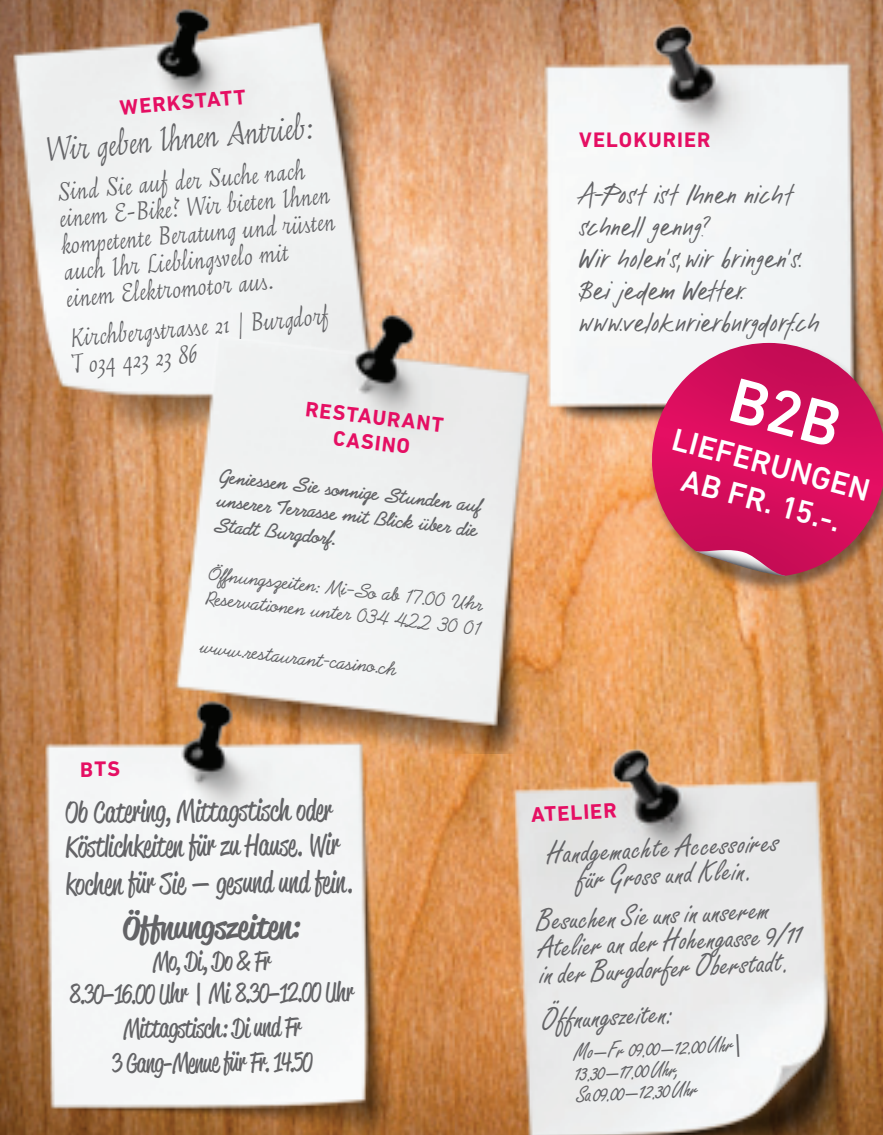 WERKSTATT
Wir geben Ihnen Antrieb:
Sind Sie auf der Suche nach
einem E-Bike? Wir bieten Ihnen
kompetente Beratung und rüsten
auch Ihr Lieblingsvelo mit
einem Elektromotor aus.
Kirchbergstrasse 21 | Burgdorf
T 034 423 23 86
VELOKURIER
A-Post ist Ihnen nicht
schnell genug?
Wir holen's, wir bringen's.
Bei jedem Wetter.
www.velokurierburgdorf.ch
B2B
LIEFERUNGEN
AB FR. 15.-.
RESTAURANT
CASINO
Geniessen Sie sonnige Stunden auf
unserer Terrasse mit Blick über die
Stadt Burgdorf.
Öffnungszeiten: Mi-So ab 17.00 Uhr
Reservationen unter 034 422 30 01
www.restaurant-casino.ch
BTS
Ob Catering, Mittagstisch oder
Köstlichkeiten für zu Hause. Wir
kochen für Sie – gesund und fein.
Öffnungszeiten:
Mo, Di, Do & Fr
8.30–16.00 Uhr | Mi 8.30–12.00 Uhr
Mittagstisch: Di und Fr
3 Gang-Menue für Fr. 14.50
ATELIER
Handgemachte Accessoires
für Gross und Klein.
Besuchen Sie uns in unserem
Atelier an der Hohengasse 9/11
in der Burgdorfer Oberstadt.
Öffnungszeiten:
Mo–Fr 09.00–12.00 Uhr |
13.30–17.00 Uhr,
Sa 09.00–12.30 Uhr